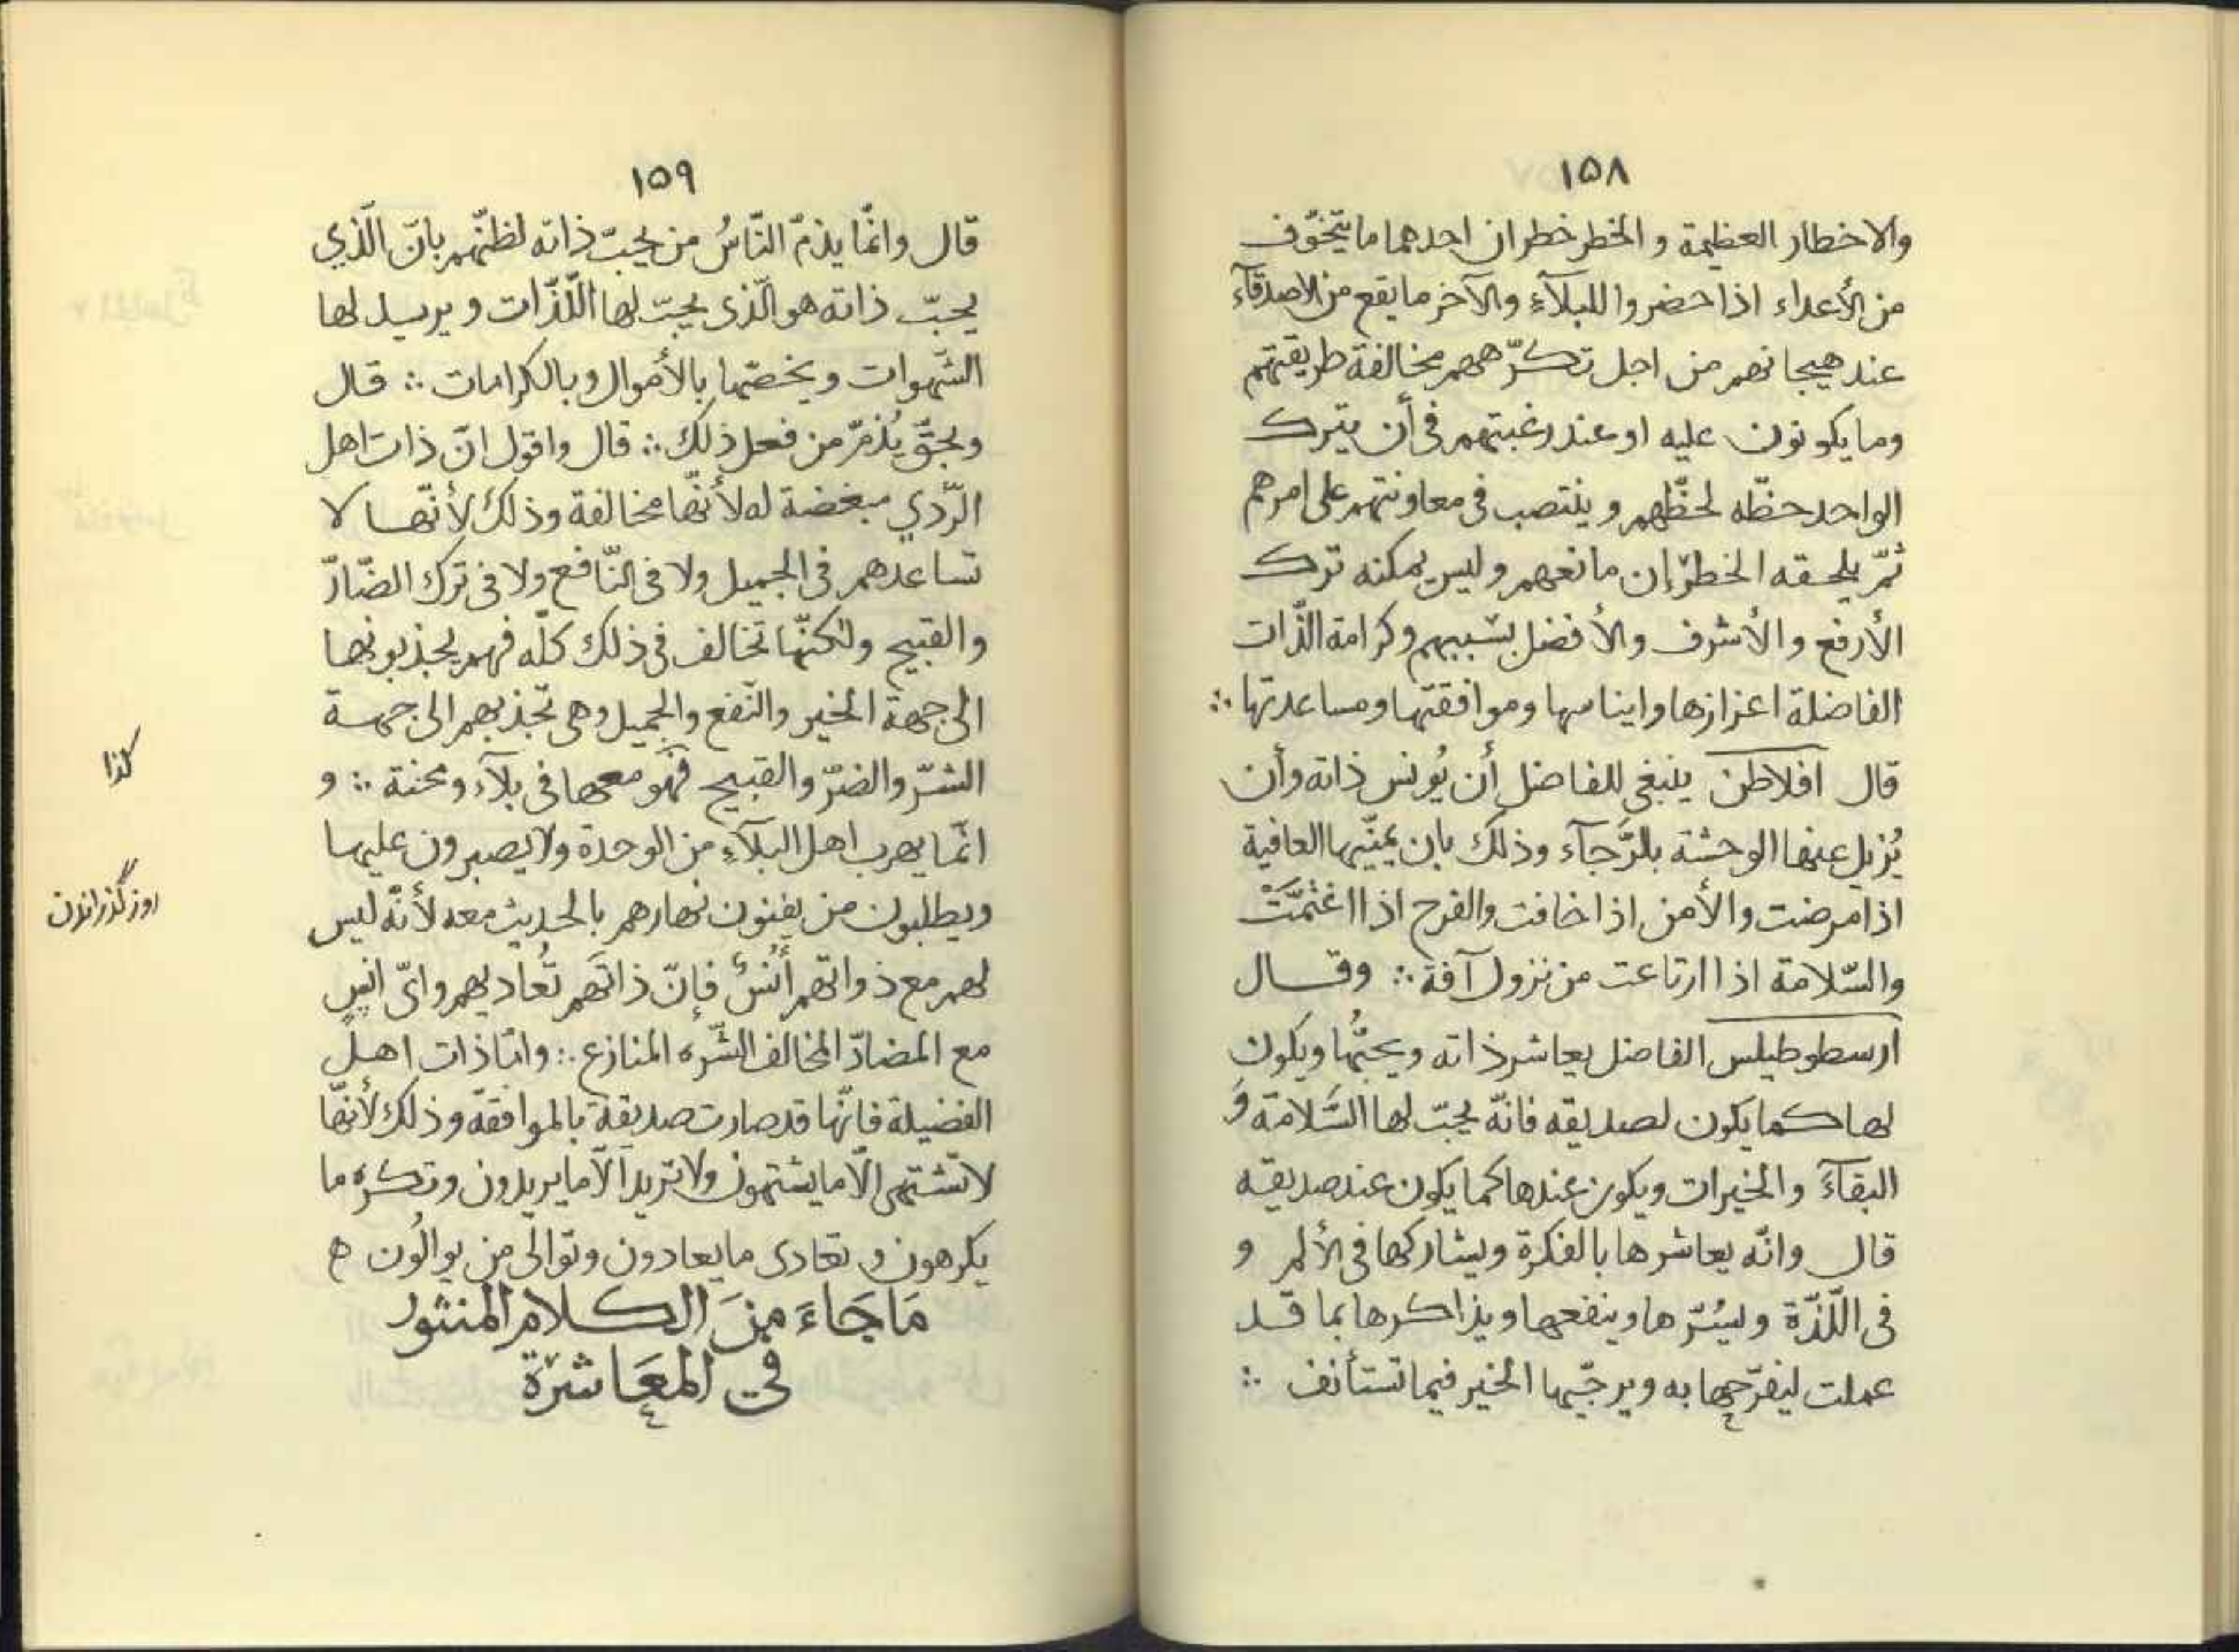 ١٥٨
والاخطار العظيمة و الخطر خطران احدهما ما يتخوّف
من الأعداء اذا حضروا للبلآء والآخر ما يقع من الاصدقآء
عند هيجانهم من اجل تكرّههم مخالفة طريقتهم
وما يكونون عليه او عند رغبتهم فى أن يترك
الواحد حظّه لحظّهم و ينتصب فى معاونتهم على امرهم
ثمّ يلحقه الخطر إن مانعهم و ليس يمكنه ترك
الأرفع و الأشرف والأفضل بسببهم وكرامة الذّات
الفاضلة اعزازها وايناسها وموافقتها ومساعدتها ∴
قال افلاطن ينبغى للفاضل أن يُونس ذاته وأن
يُزيل عنها الوحشة بالرَّجآء وذلك بان يمنّيها العافية
اذا مرضت والأمن اذا خافت والفرح اذا اغتمَّتْ
والسّلامة اذا ارتاعت من نزول آفة ∴ وقال
ارسطوطيلس الفاضل يعاشر ذاته ويحبُّها ويكون
لها كما يكون لصديقه فانّه يحبّ لها السَّلامة وَ
البقآءَ والخيرات ويكون عندها كما يكون عند صديقه
قال وانّه يعاشرها بالفكرة ويشاركها فى الألم و
فى اللّذّة ويسُرّها وينفعها ويذاكرها بما قد
عملت ليفرّحها به ويرجّيها الخير فيما تستأنف ∴
١٥٩
قال وانّما يذمّ النّاسُ من يحبّ ذاته لظنّهم بانّ الّذي
يحبّ ذاته هو الّذى يحبّ لها اللّذّات و يرسل لها
الشّهوات ويخصّها بالأموال وبالكرامات ∴ قال
وبحقّ يُذمّ من فعل ذلك ∴ قال واقول انّ ذات اهل
الرّدي مبغضة له لأنّها مخالفة وذلك لأنّها لا
تساعدهم فى الجميل ولا فى النّافع ولا فى ترك الضّارّ
والقبيح ولكنّها تخالف فى ذلك كلّه فهم يجذبونها
الى جهة الخير والنّفع والجميل وهى تجذبهم الى جهة
الشّرّ والضرّ والقبيح فهو معها فى بلآء ومحنة ∴ و
انّما يهرب اهل البلآء من الوحدة ولا يصبرون عليها
ويطلبون من يفنون نهارهم بالحديث معه لأنّه ليس
لهم مع ذواتهم أُنْسٌ فإنّ ذاتَهم تُعاديهم واىّ انسٍ
مع المضادّ المخالف الشّره المنازع ∴ وامّا ذات اهل
الفضيلة فانّها قد صارت صديقة بالموافقة وذلك لأنّها
لا تشتهى الّا ما يشتهون ولا تريد الّا ما يريدون وتكره ما
يكرهون و تعادى ما يعادون وتوالى من يوالُون ه
مَا جَاءَ مِنَ الكلام المنثور
في المعَاشرَة
كذا
روز گذرانون